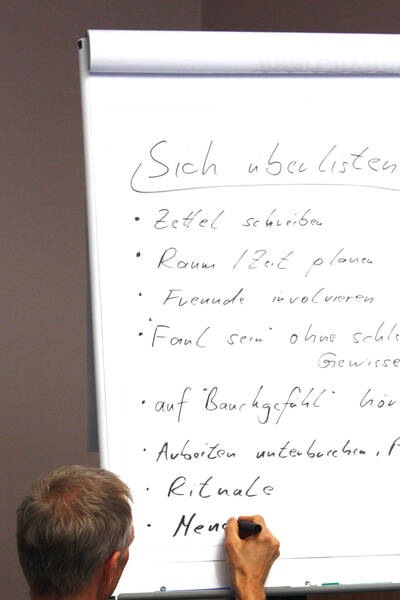 Sich überlisten
• Zettel schreiben
• Raum / Zeit planen
• Freunde involvieren
• "Faul sein" ohne schle
Gewisse
• auf "Bauchgefühl" hör
• Arbeiten unterbrechen,
• Rituale
• Men